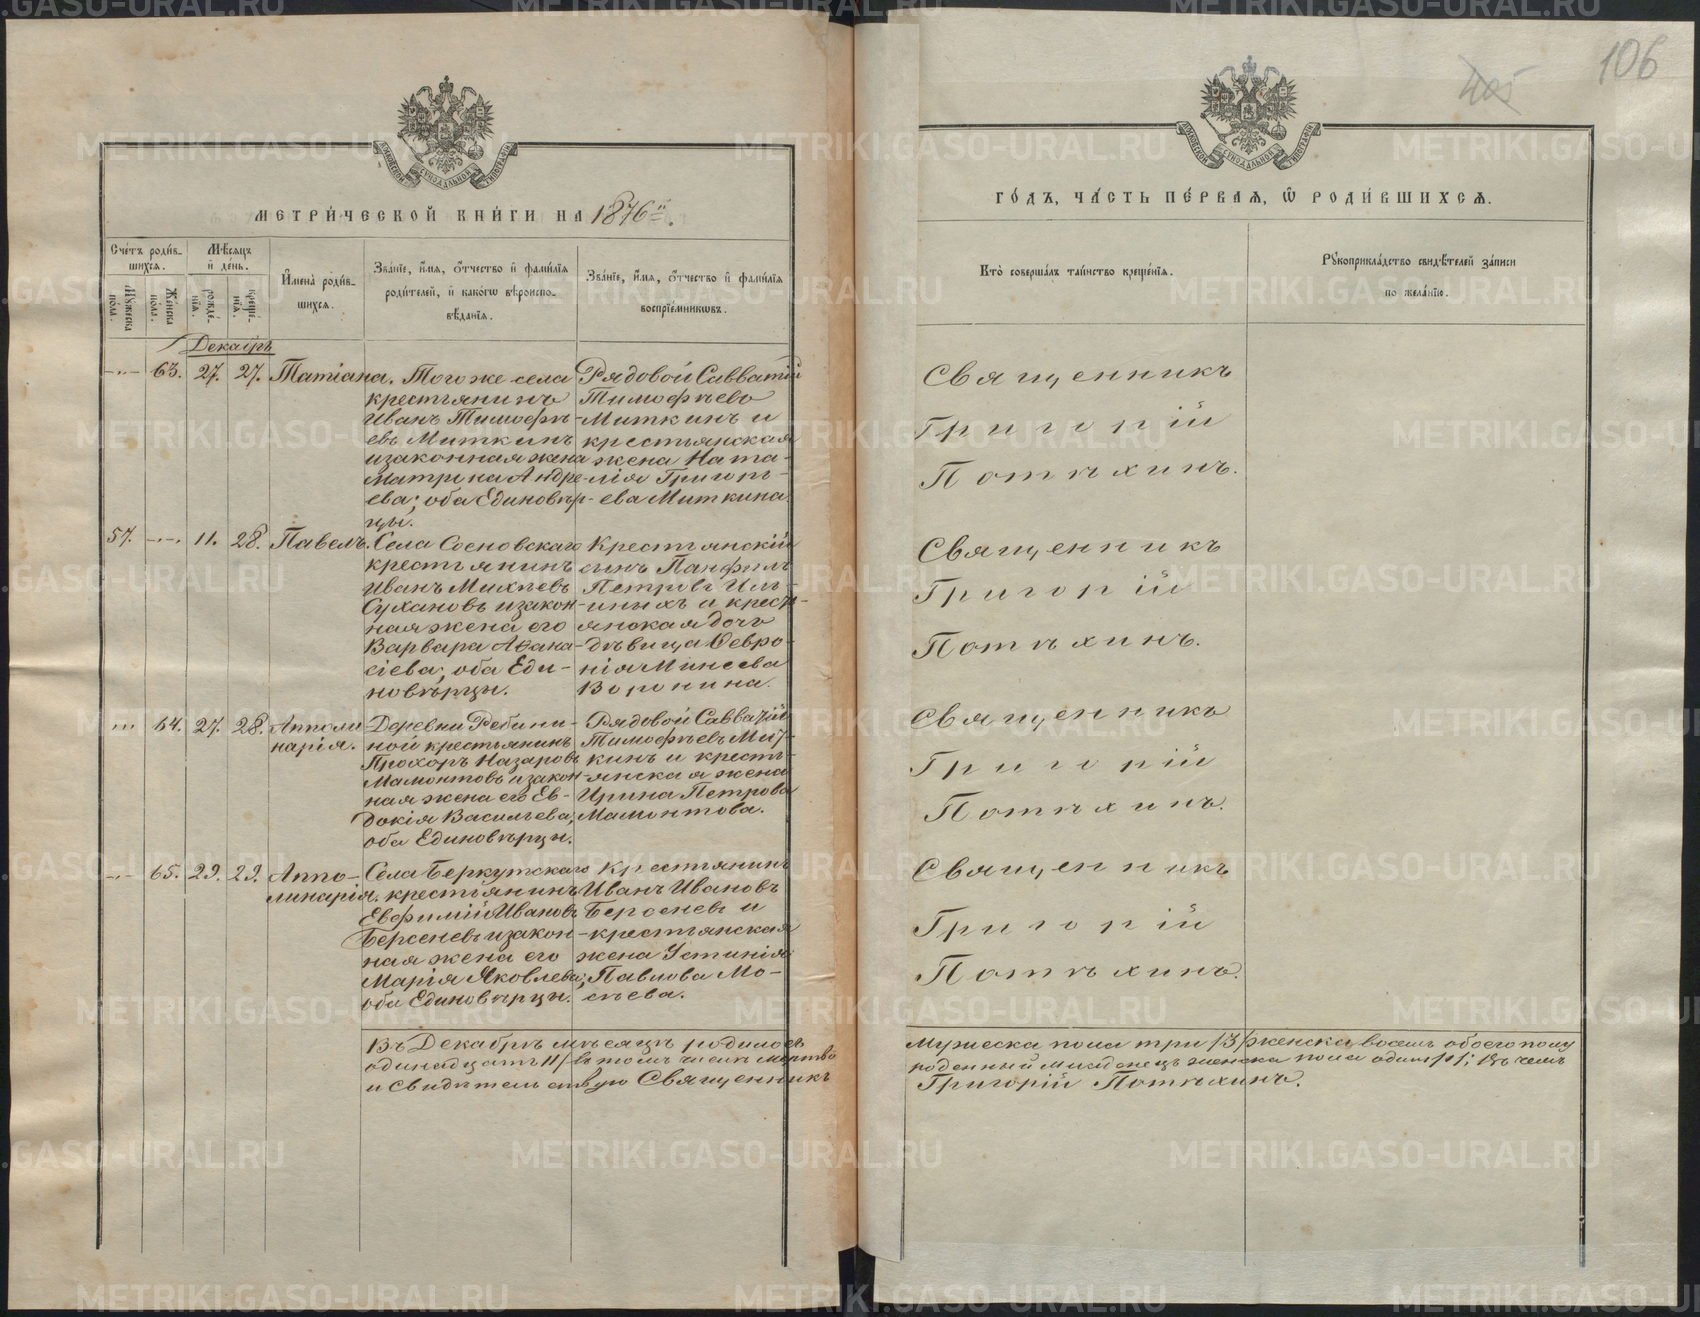 106
МЕТРИ́ЧЕСКОЙ КНИ́ГИ НА 1876й.
ГО́ДЪ, ЧА́СТЬ ПЕ́РВАЯ, Ѿ РОДИ́ВШИХСЯ.
Сче́тъ роди́в-
шихся.
Мꙋжеска пола.
Женска пола.
Мѣсяцъ
и де́нь.
рожде́-
нїя.
креще́-
нїя.
Имена̀ роди́в-
шихся.
Зва́нїе, и́мя, о́тчество и фами́лїя
роди́телей, и како́гѡ вѣроиспо-
вѣ́данїя.
Зва́нїе, и́мя, о́тчество и фами́лїя
воспрїе́мникѡвъ.
Кто̀ соверша́лъ таи́нство креще́нїя.
Рꙋкоприкла́дство свидѣ́телей за́писи
по жела́нїю.
Декабрь
63. 27. 27. Татіана. Того же села
крестьянинъ
Иванъ Тимофѣ-
евъ Миткинъ
и законная жена
Матрена Андре-
ева; оба Единовѣр-
цы.
Рядовой Савватій
Тимофѣевъ
Миткинъ и
крестьянская
жена Ната-
лія Григорь-
ева Миткина.
Священникъ
Григорій
Потѣхинъ.
57. 11. 28. Павелъ. Села Сосновскаго
крестьянинъ
Иванъ Михѣевъ
Сухановъ и закон-
ная жена его
Варвара Аѳана-
сіева; оба Еди-
новѣрцы.
Крестьянскій
сынъ Панфилъ
Петровъ Иль-
иныхъ и кресть-
янская дочь
дѣвица Февро-
нія Минеева
Воронина.
Священникъ
Григорій
Потѣхинъ.
64. 27. 28. Апполи
нарія.
Деревни Рябини-
ной крестьянинъ
Прохоръ Назаровъ
Мамонтовъ и закон-
ная жена его Ев-
докія Васильева;
оба Единовѣрцы.
Рядовой Савватій
Тимофѣевъ Мит-
кинъ и кресть-
янская жена
Ирина Петрова
Мамонтова.
Священникъ
Григорій
Потѣхинъ.
65. 29. 29. Аппо-
линарія.
Села Беркутскаго
крестьянинъ
Евфимій Ивановъ
Берсеневъ и закон-
ная жена его
Марія Яковлева;
оба Единовѣрцы.
Крестьянинъ
Иванъ Ивановъ
Берсеневъ и
крестьянская
жена Устинія
Павлова Мо-
сѣева.
Священникъ
Григорій
Потѣхинъ.
Въ Декабрѣ мѣсяцѣ родилось Мужеска пола три /3/ женска восемь обоего полу
одинадцать 11/ въ томъ числѣ мертво рожденный младенецъ женска пола одинъ /1/; въ чемъ
и свидѣтельствую Священникъ Григорій Потѣхинъ.
METRIKI.GASO-URAL.RU